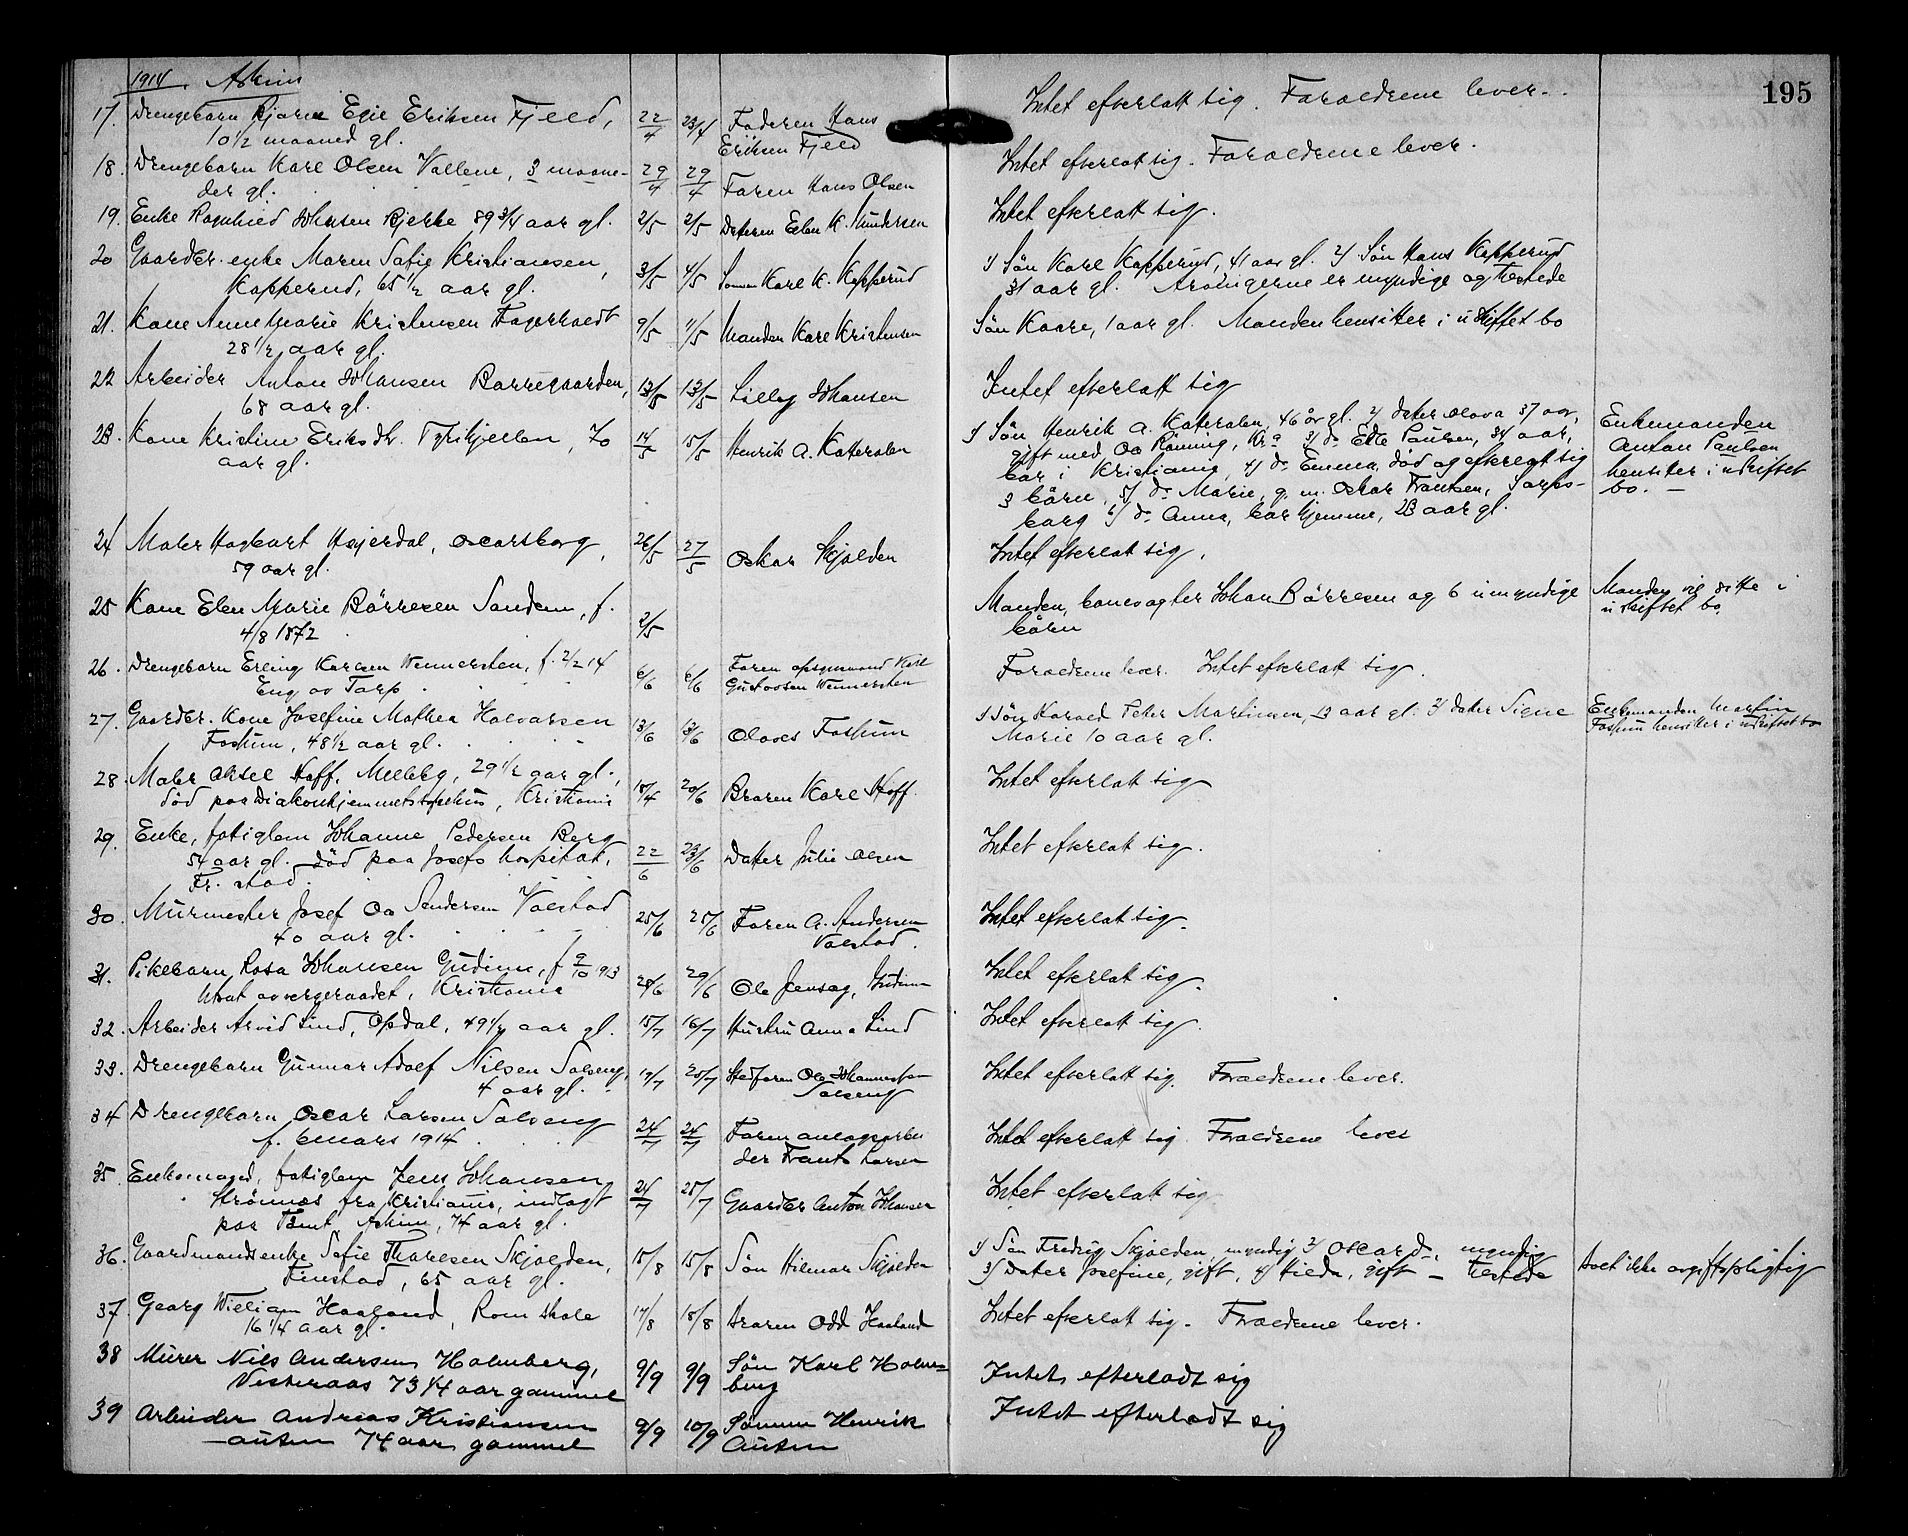 1914. Askim
195
17. Drengebarn Bjarne Egil Eriksen Fjeld, 22/4 23/4 Faderen Hans Intet efterlatt sig. Foraeldrene lever.
10 1/2 maaned gl. Eriksen Fjeld
18. Drengebarn Karl Olsen Vallene, 3 maane- 29/4 29/4 Faren Hans Olsen Intet efterlatt sig. Foraeldrene lever.
der gl.
19. Enke Ragnhild Johnsen Bjerke 89 3/4 aar gl. 2/5 2/5 Dateren Elen K. Intet efterlatt sig.
20 Gaardbr. enke Maren Sofie Kristiansen, 3/5 4/5 Sønnen Karl K. Kopperud 1) Søn Karl Kopperud, 41 aar gl. 2) Søn Hans Kopperud
Kopperud, 65 1/2 aar gl. 31 aar gl. Arvingerne er myndige og tilstede
21. Kone Anne Marie Kristensen Fagerholdt 9/5 11/5 Manden Karl Kristensen Søn Kaare, 1 aar gl. Manden hensitter i uskiftet bo
28 1/2 aar gl.
22 Arbeider Anton Johansen Borregaarden, 13/5 13/5 Lilly Johansen Intet efterlatt sig
68 aar gl.
23. Kone Kristine Eriksdtr. Tyrihjellen, 70 14/5 15/5 Henrik A. Katteralen 1) Søn Henrik A. Katteralen, 46 år gl. 2) dater Olava 37 aar, Enkemanden
aar gl. gift med Rönning, Kra 3) do Edle Paulsen, 34 aar, Anton Paulsen
bor i Kristiania, 4) do Emma, død og efterlatt sig hensiter i uskiftet
3 börn, 5) do Marie, g. m. Oskar Frantsen, Sarps- bo. —
borg 6) do Anna, bor hjemme, 23 aar gl.
24 Maler Hagbart Hejerdal, Oscarsborg, 26/5 27/5 Oskar Skjolden Intet efterlat sig.
59 aar gl.
25 Kone Elen Marie Börresen Sandem, f. 2/5 Manden, banevagter Johan Börresen og 6 umyndige Manden vil sitte i
4/8 1872 börn uskiftet bo
26. Drengebarn Erling Karlsen Wennersten, f. 2/2 14 6/6 6/6 Faren opsynsmand Karl Foraeldrene lever. Intet efterlatt sig.
Eng av Torp. Gustavsen Wennersten
27. Gaardbr. Kone Josefine Mathea Halvorsen 13/6 13/6 Olaves Fossum 1) Søn Harald Peter Martinsen, 13 aar gl. 2) dater Signe Enkemanden Martin
Fossum, 48 1/2 aar gl. Marie 10 aar gl. Fossum hensitter i uskiftet bo
28. Maler Aksel Hoff. Melleby, 29 1/2 aar gl., 20/6 Broren Karl Hoff. Intet efterlatt sig
død paa Diakonhjemmets sykehus, Kristiania
29. Enke, fatiglem Johanne Pedersen Berg 22/6 23/6 Datter Julie Olsen Intet efterlat sig.
54 aar gl. død paa Josefs hospital,
Fr. stad.
30. Murmester Josef Andersen Volstad 25/6 25/6 Faren A. Andersen Intet efterlat sig.
40 aar gl. Volstad.
31. Pikebarn Rosa Johansen Gudim, f 9/10 913 28/6 29/6 Ole Jensog, Gudim Intet efterlat sig.
Kristiania
32. Arbeider Arvid Lind, Opdal, 49 1/2 aar gl. 15/7 16/7 Hustru Anna Lind Intet efterlat sig.
33. Drengebarn Gunnar Adolf Nilsen Solseng, 19/7 20/7 Stedfaren Ole Johannessen Intet efterlatt sig. Foraeldrene lever.
4 aar gl. Solseng
34 Drengebarn Oscar Larsen Solseng 24/7 24/7 Faren anlægsarbei Intet efterlatt sig. Foraeldrene lever
f. 6 mars 1914 der Frants Larsen
35. Enkemand, fatiglem Jens Johansen 24/7 25/7 Gaardbr Anton Johansen Intet efterlatt sig
Strömnes fra Kristiania, indlagt
paa Tømt, Askim, 74 aar gl.
36. Gaardmandsenke Sofie Tharlesen Skjolden, 15/8 15/8 Søn Hilmar Skjolden 1) Søn Fredrig Skjolden, myndig 2) Oscar do. myndig Boet ikke avgiftspligtig
Finstad, 65 aar gl. 3) Dater Josefine, gift, 4) Hilda, gift — tilstede
37 Georg William Haaland, Rom skole 17/8 18/8 Broren Odd Haaland Intet efterlatt sig. Foraeldrene lever.
16 1/4 aar gl.
38 Murer Nils Andersen Holmberg, 9/9 9/9 Søn Karl Holm= Intet efterladt sig
Vesteraas 73 1/4 aar gammel berg
39 Arbeider Andreas Kristiansen 9/9 10/9 Sønnen Henrik Intet efterladt sig
Auten 74 aar gammel Auten